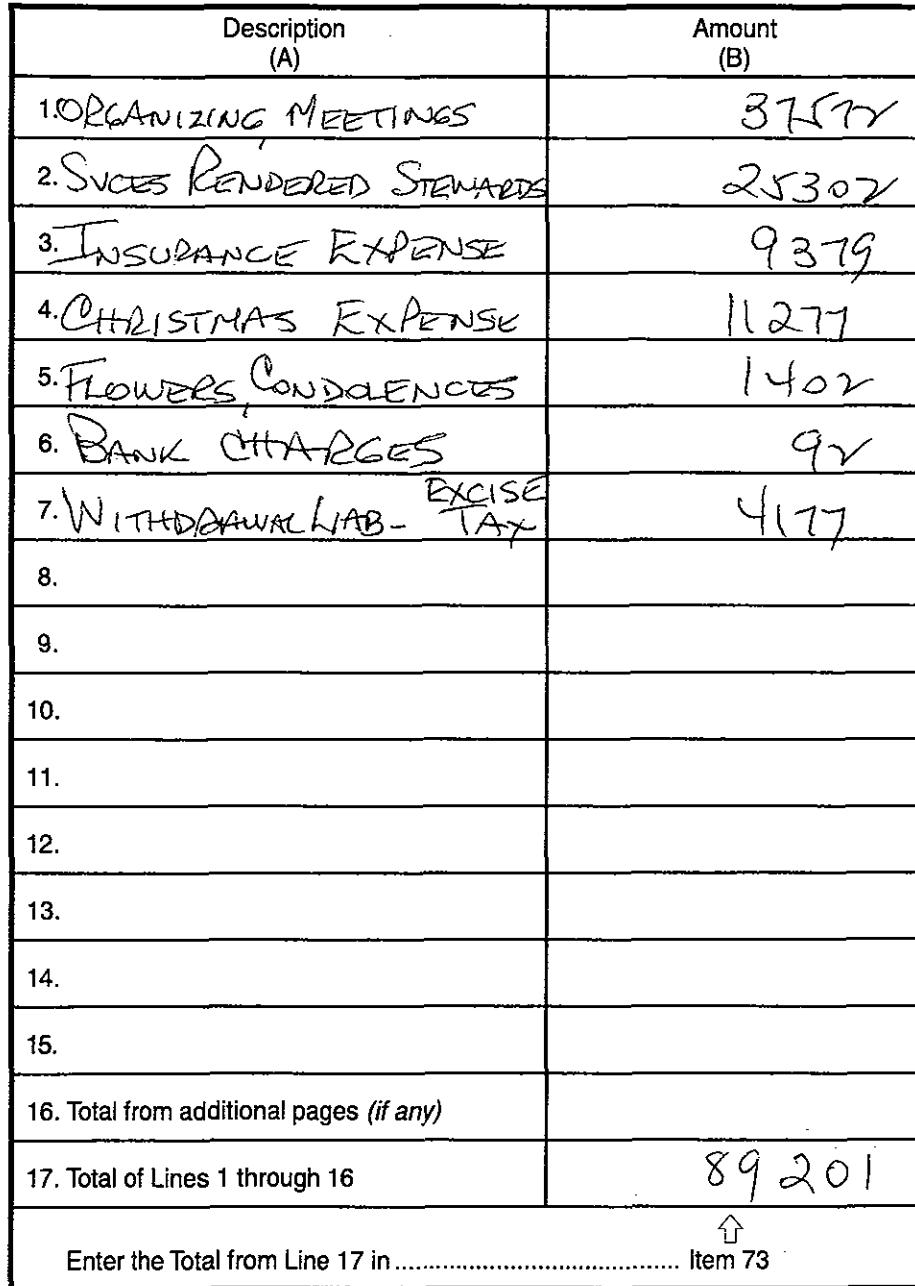 Description
(A)
Amount
(B)
1. ORGANIZING MEETINGS 37572
2. SVCES RENDERED STEWARDS 25302
3. INSURANCE EXPENSE 9379
4. CHRISTMAS EXPENSE 11277
5. FLOWERS, CONDOLENCES 1402
6. BANK CHARGES 92
7. WITHDRAWAL LIAB- EXCISE TAX 4177
8.
9.
10.
11.
12.
13.
14.
15.
16. Total from additional pages (if any)
17. Total of Lines 1 through 16 89201
Enter the Total from Line 17 in ........................................ Item 73